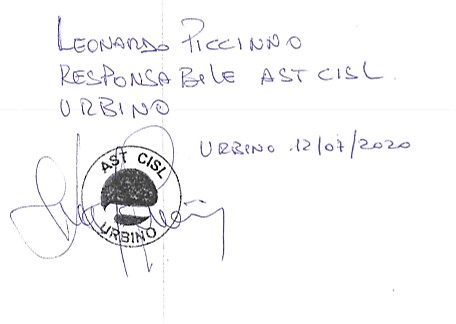 LEONARDO PICCINNO
RESPONSABILE AST CISL
URBINO
URBINO 12/07/2020
AST CISL
URBINO